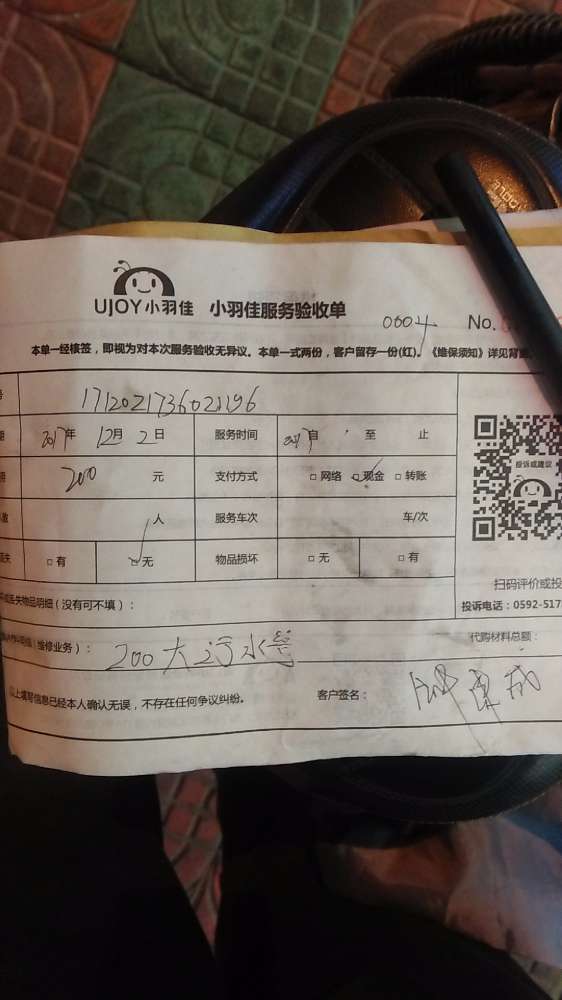 UJOY小羽佳 小羽佳服务验收单
0004 No.
本单一经核签，即视为对本次服务验收无异议。本单一式两份，客户留存一份(红)。《维保须知》详见背面
171202173602196
2017年 12月 2日 服务时间 2017自 至 止
200 元 支付方式 □网络 ☑现金 □转账
人 服务车次 车/次
□有 ☑无 物品损坏 □无 □有
投诉或建议
扫码评价或投
投诉电话：0592-517
丢失物品明细（没有可不填）：
（维修业务）： 200大污水管 代购材料总额：
以上填写信息已经本人确认无误，不存在任何争议纠纷。 客户签名：